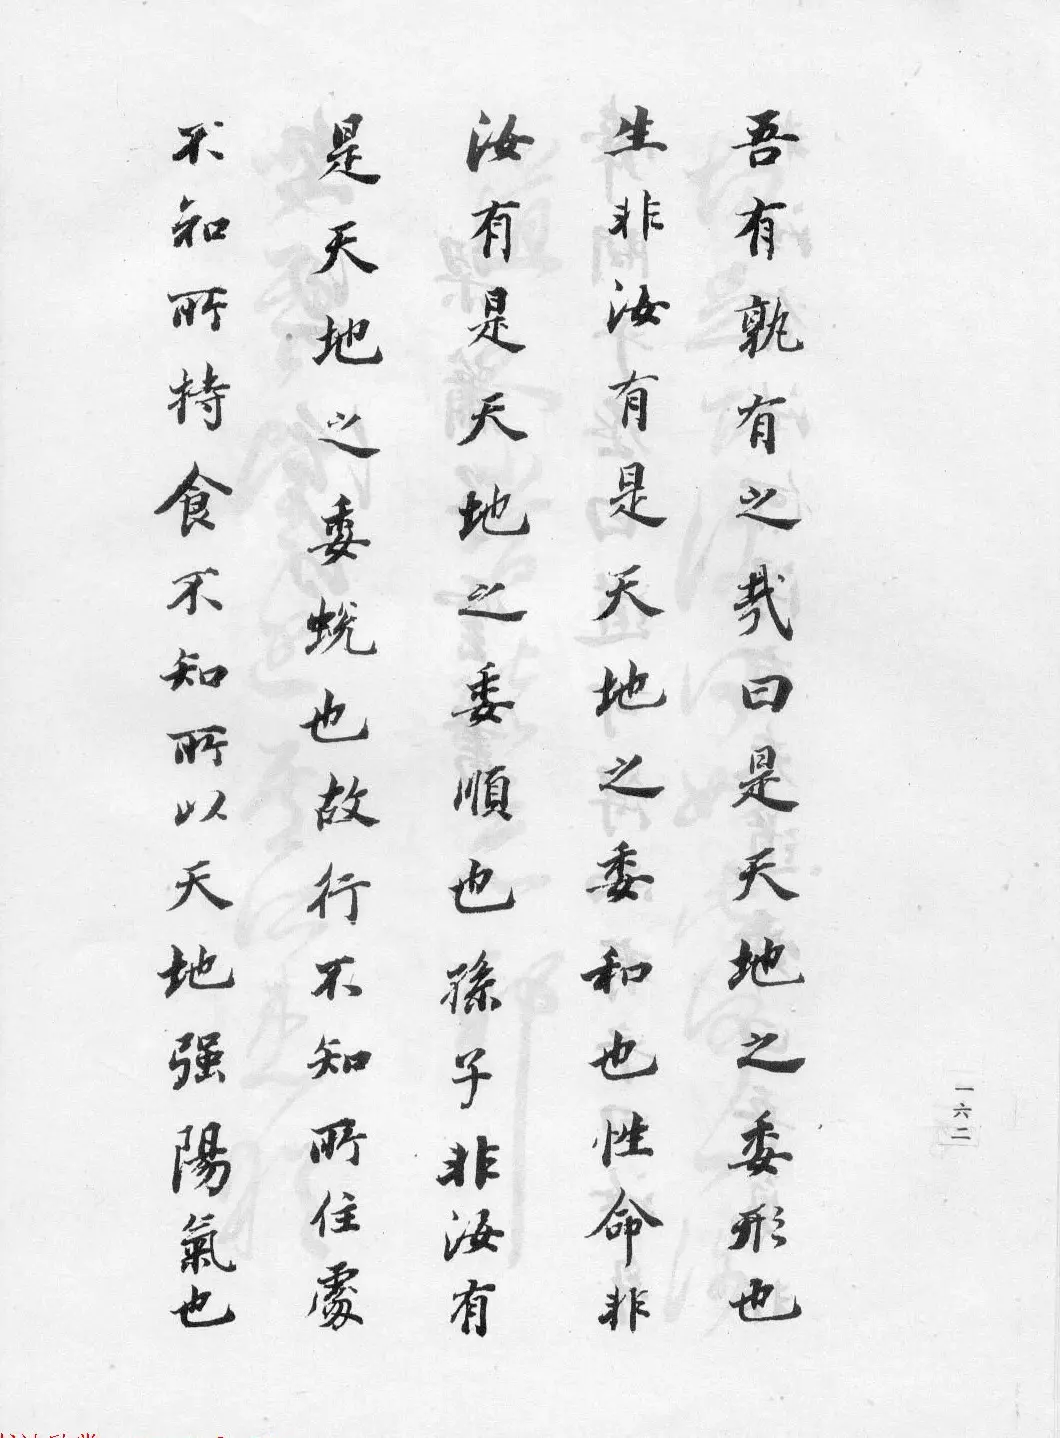 吾有孰有之哉曰是天地之委形也
生非汝有是天地之委和也性命非
汝有是天地之委順也孫子非汝有
是天地之委蛻也故行不知所住處
不知所持食不知所以天地强陽氣也
一六二